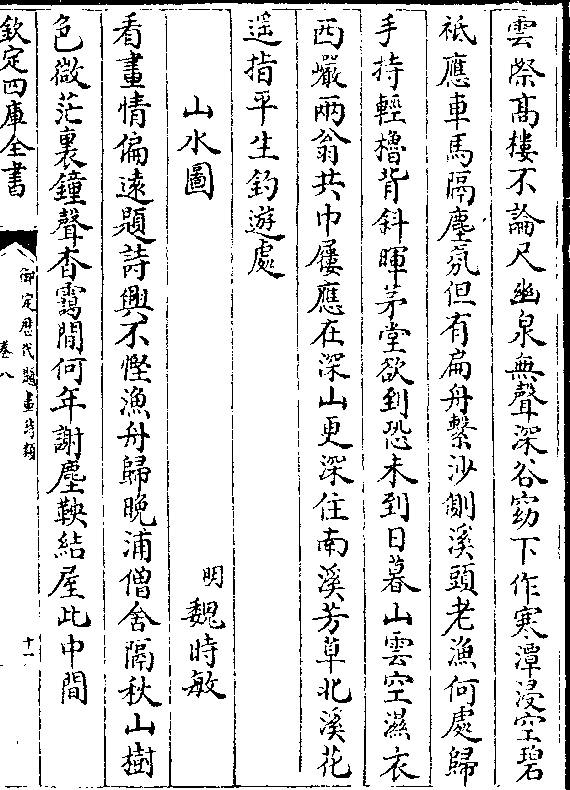 雲際髙樓不論尺幽泉無聲深谷窈下作寒潭浸空碧
祗應車馬隔塵氛但有扁舟繫沙側溪頭老漁何處歸
手持輕櫓背斜暉茅堂欲到恐未到日暮山雲空濕衣
西巗兩翁共巾屨應在深山更深住南溪芳草北溪花
遥指平生釣遊處
山水圖
明 魏時敏
看畫情偏遠題詩興不慳漁舟歸晚浦僧舍隔秋山樹
色微茫裏鐘聲杳靄間何年謝塵鞅結屋此中間
欽定四庫全書
御定歷代題畫詩類
卷八
十一